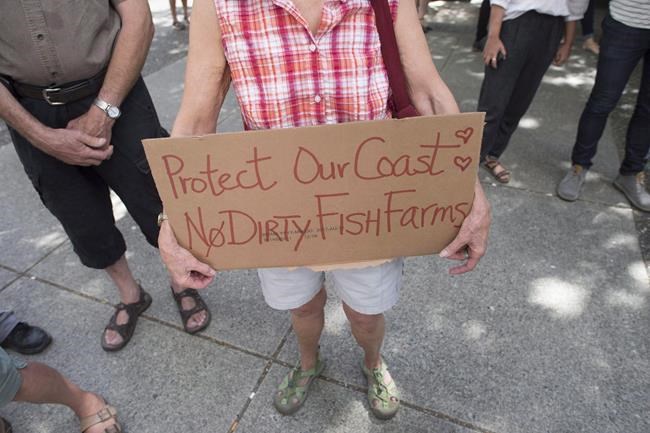 Protect Our Coast
No Dirty Fish Farms